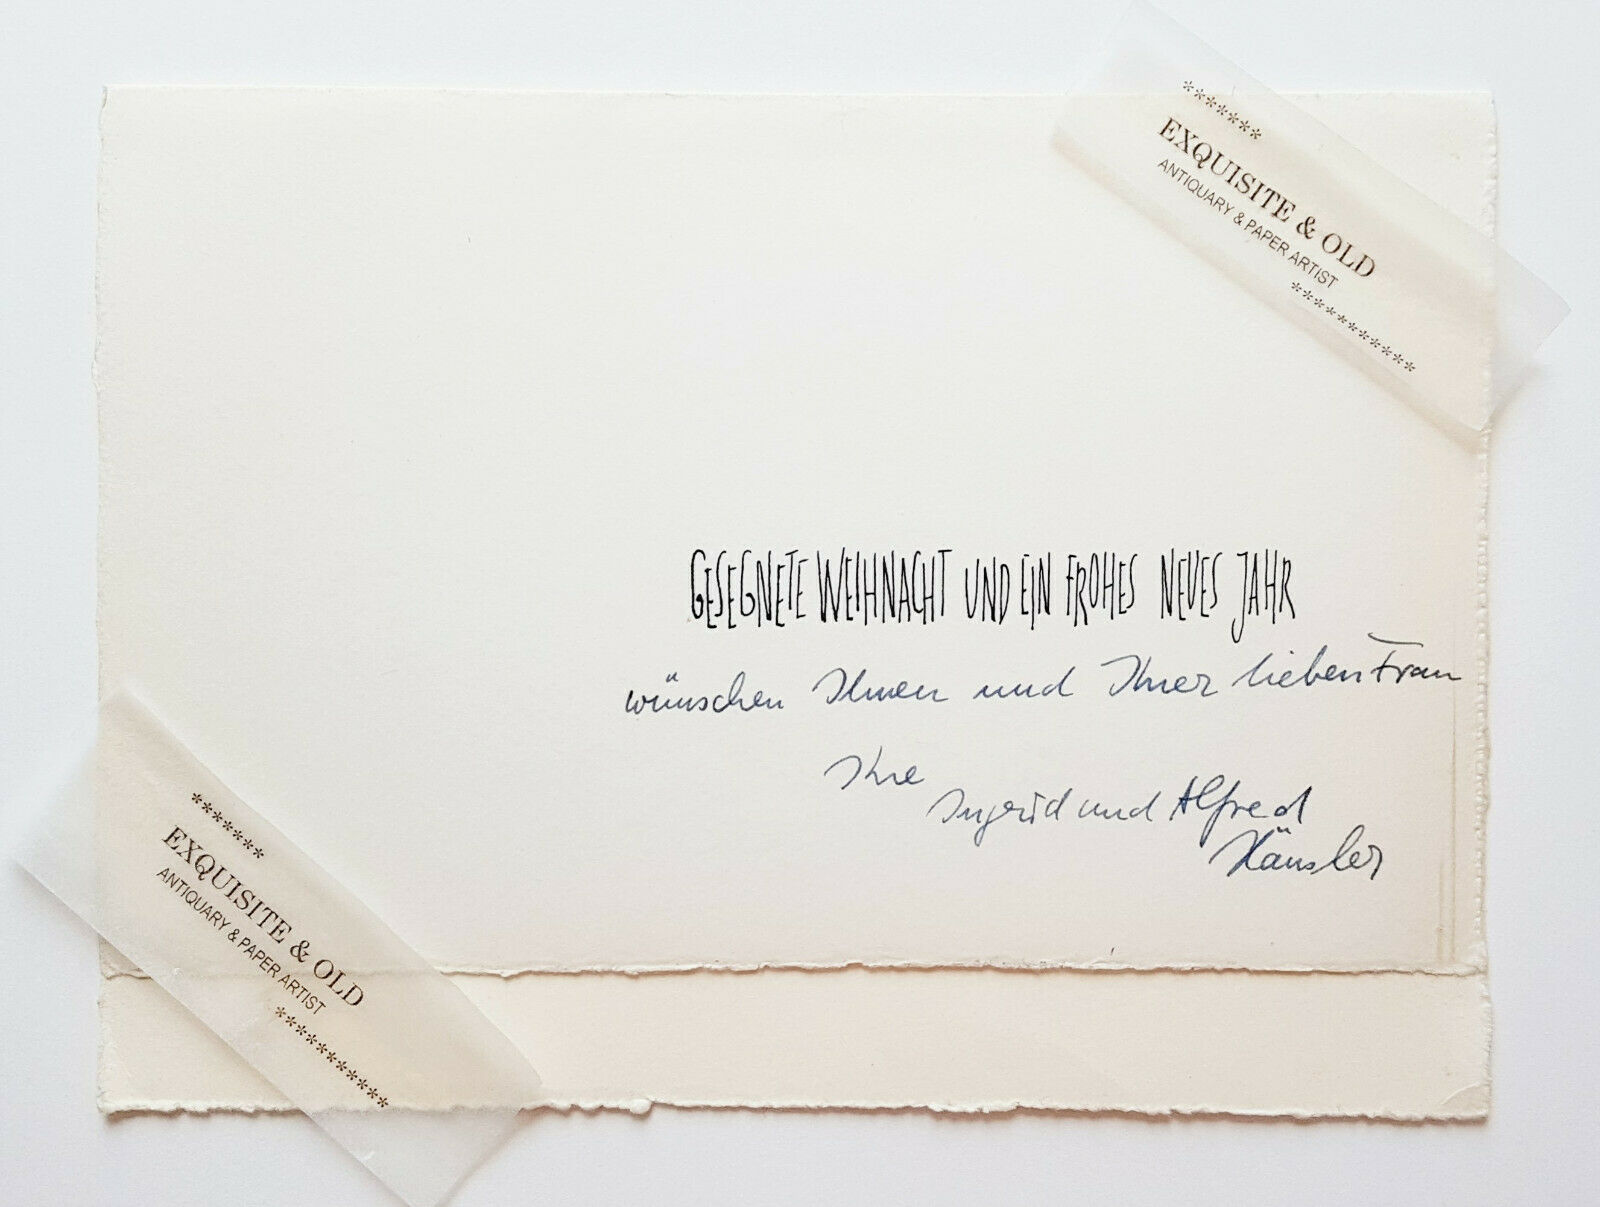 *******
EXQUISITE & OLD
ANTIQUARY & PAPER ARTIST
************
GESEGNETE WEIHNACHT UND EIN FROHES NEUES JAHR
wünschen Ihnen und Ihrer lieben Frau
Ihre
Ingrid und Alfred
Hänsler
*******
EXQUISITE & OLD
ANTIQUARY & PAPER ARTIST
************